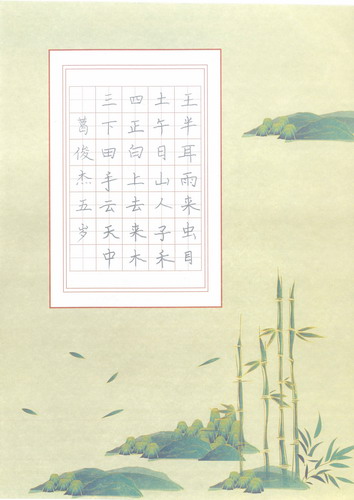 王半耳雨来虫目
土午日山人子禾
四正白上去来木
三下田手云天中
葛俊杰五岁